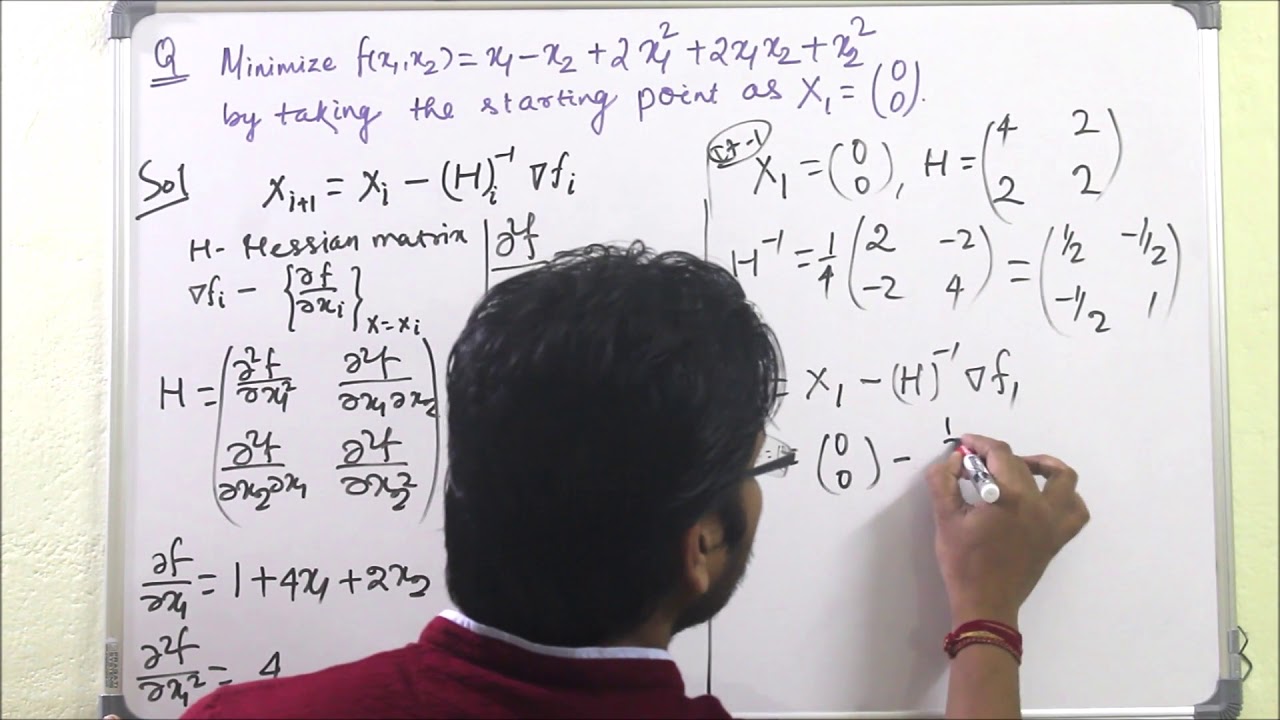 Q Minimize f(x₁,x₂) = x₁ - x₂ + 2x₁² + 2x₁x₂ + x₂²
by taking the starting point as X₁ = (0 0).
Sol
X_{i+1} = X_i - (H)_i⁻¹ ∇f_i
H - Hessian matrix
∇f_i - {∂f/∂x_i}_{X=X_i}
H = (∂²f/∂x₁² ∂²f/∂x₁∂x₂
∂²f/∂x₂∂x₁ ∂²f/∂x₂²)
∂f/∂x₁ = 1 + 4x₁ + 2x₂
∂²f/∂x₁² = 4
∂²f
It-1
X₁ = (0 0), H = (4 2
2 2)
H⁻¹ = 1/4 (2 -2
-2 4) = (1/2 -1/2
-1/2 1)
= X₁ - (H)⁻¹ ∇f₁
(0 0) - 1